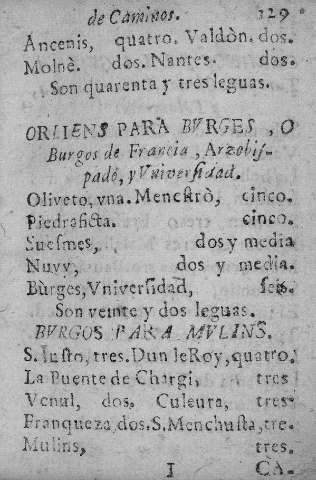 de Caminos. 329
Ancenis, quatro. Valdòn. dos.
Molnè. dos. Nantes. dos.
Son quarenta y tres leguas.
ORLIENS PARA BVRGES, O
Burgos de Francia, Arzobis-
pado, y Vniversidad.
Oliveto, vna. Menestrò, cinco.
Piedraficta. cinco.
Suesmes, dos y media
Nuvy, dos y media.
Bùrges, Vniversidad, seis.
Son veinte y dos leguas.
BVRGOS PARA MVLINS.
S. Iusto, tres. Dun le Roy, quatro.
La Puente de Chargi, tres
Venul, dos, Culeura, tres.
Franqueza, dos. S. Menchusta, tre.
Mulins, tres.
I CA-